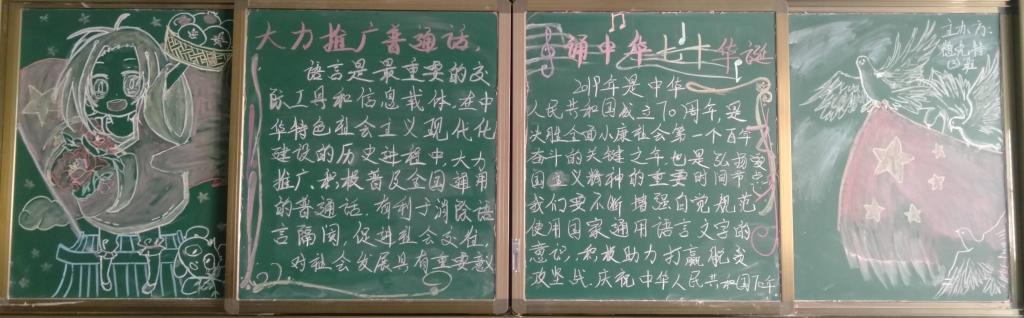 大力推广普通话,
语言是最重要的交
际工具和信息载体.在中
华特色社会主义现代化
建设的历史进程中大力
推广、积极普及全国通用
的普通话.有利于消除语
言隔阂,促进社会交往,
对社会发展具有重要意
诵中华七十华诞
2019年是中华
人民共和国成立70周年,是
决胜全面小康社会第一个百年
奋斗的关键之年也是弘扬爱
国主义精神的重要时间节点
我们要不断增强自觉规范
使用国家通用语言文字的
意识,积极助力打赢脱贫
攻坚战.庆祝中华人民共和国70年
主办方: